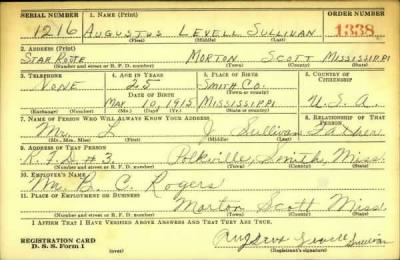 SERIAL NUMBER 1. NAME (Print) ORDER NUMBER
1216 AUGUSTUS LEVELL SULLIVAN 1338
(First) (Middle) (Last)
2. ADDRESS (Print)
STAR ROUTE MORTON SCOTT MISSISSIPPI
(Number and street or R. F. D. number) (Town) (County) (State)
3. TELEPHONE 4. AGE IN YEARS 5. PLACE OF BIRTH 6. COUNTRY OF CITIZENSHIP
NONE 25 SMITH CO.
DATE OF BIRTH (Town or county)
MAY 10, 1915 MISSISSIPPI U.S.A.
(Exchange) (Number) (Mo.) (Day) (Yr.) (State or country)
7. NAME OF PERSON WHO WILL ALWAYS KNOW YOUR ADDRESS 8. RELATIONSHIP OF THAT PERSON
Mr. L. J. Sullivan Father
(Mr., Mrs., Miss) (First) (Middle) (Last)
9. ADDRESS OF THAT PERSON
R.F.D. #3 Polkville, Smith, Miss.
(Number and street or R. F. D. number) (Town) (County) (State)
10. EMPLOYER'S NAME
Mr. B. C. Rogers
11. PLACE OF EMPLOYMENT OR BUSINESS
Morton Scott Miss
(Number and street or R. F. D. number) (Town) (County) (State)
I AFFIRM THAT I HAVE VERIFIED ABOVE ANSWERS AND THAT THEY ARE TRUE.
REGISTRATION CARD
D. S. S. Form 1 (over)
Levell Sullivan
(Registrant's signature)